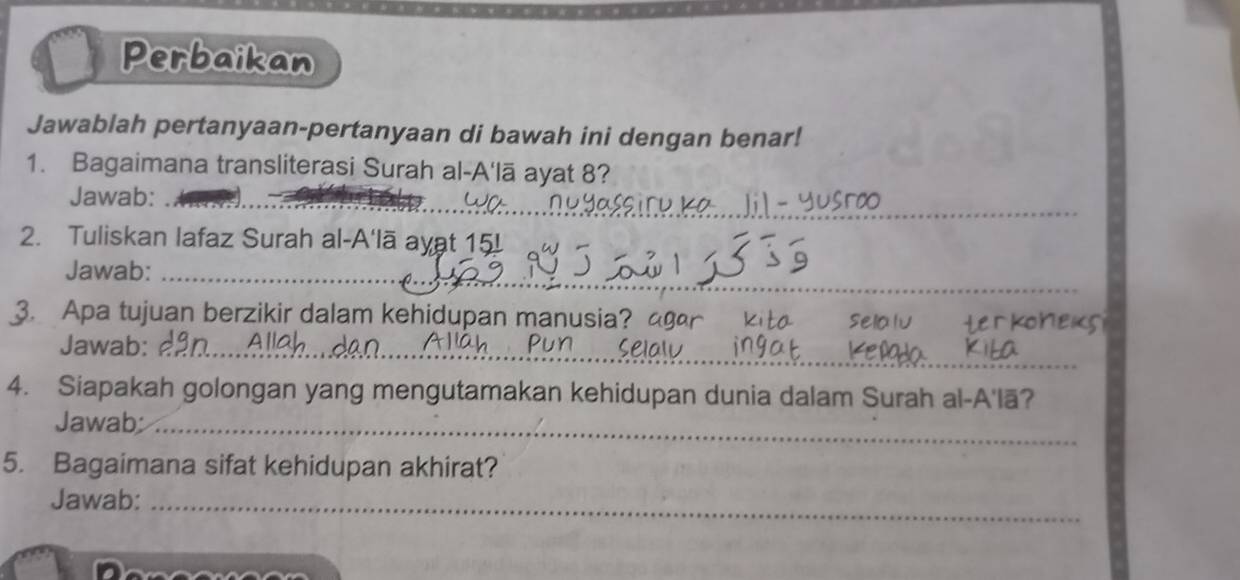 Perbaikan
Jawablah pertanyaan-pertanyaan di bawah ini dengan benar!
1. Bagaimana transliterasi Surah al-A'lā ayat 8?
Jawab: wa nuyassiruka lil-yusroo
2. Tuliskan lafaz Surah al-A'lā ayat 15!
Jawab: وَذَكَرَ اسْمَ رَبِّهٖ فَصَلّٰى
3. Apa tujuan berzikir dalam kehidupan manusia? agar kita selalu terkoneksi
Jawab: dgn Allah dan Allah pun selalu ingat kepada kita
4. Siapakah golongan yang mengutamakan kehidupan dunia dalam Surah al-A'lā?
Jawab:
5. Bagaimana sifat kehidupan akhirat?
Jawab: